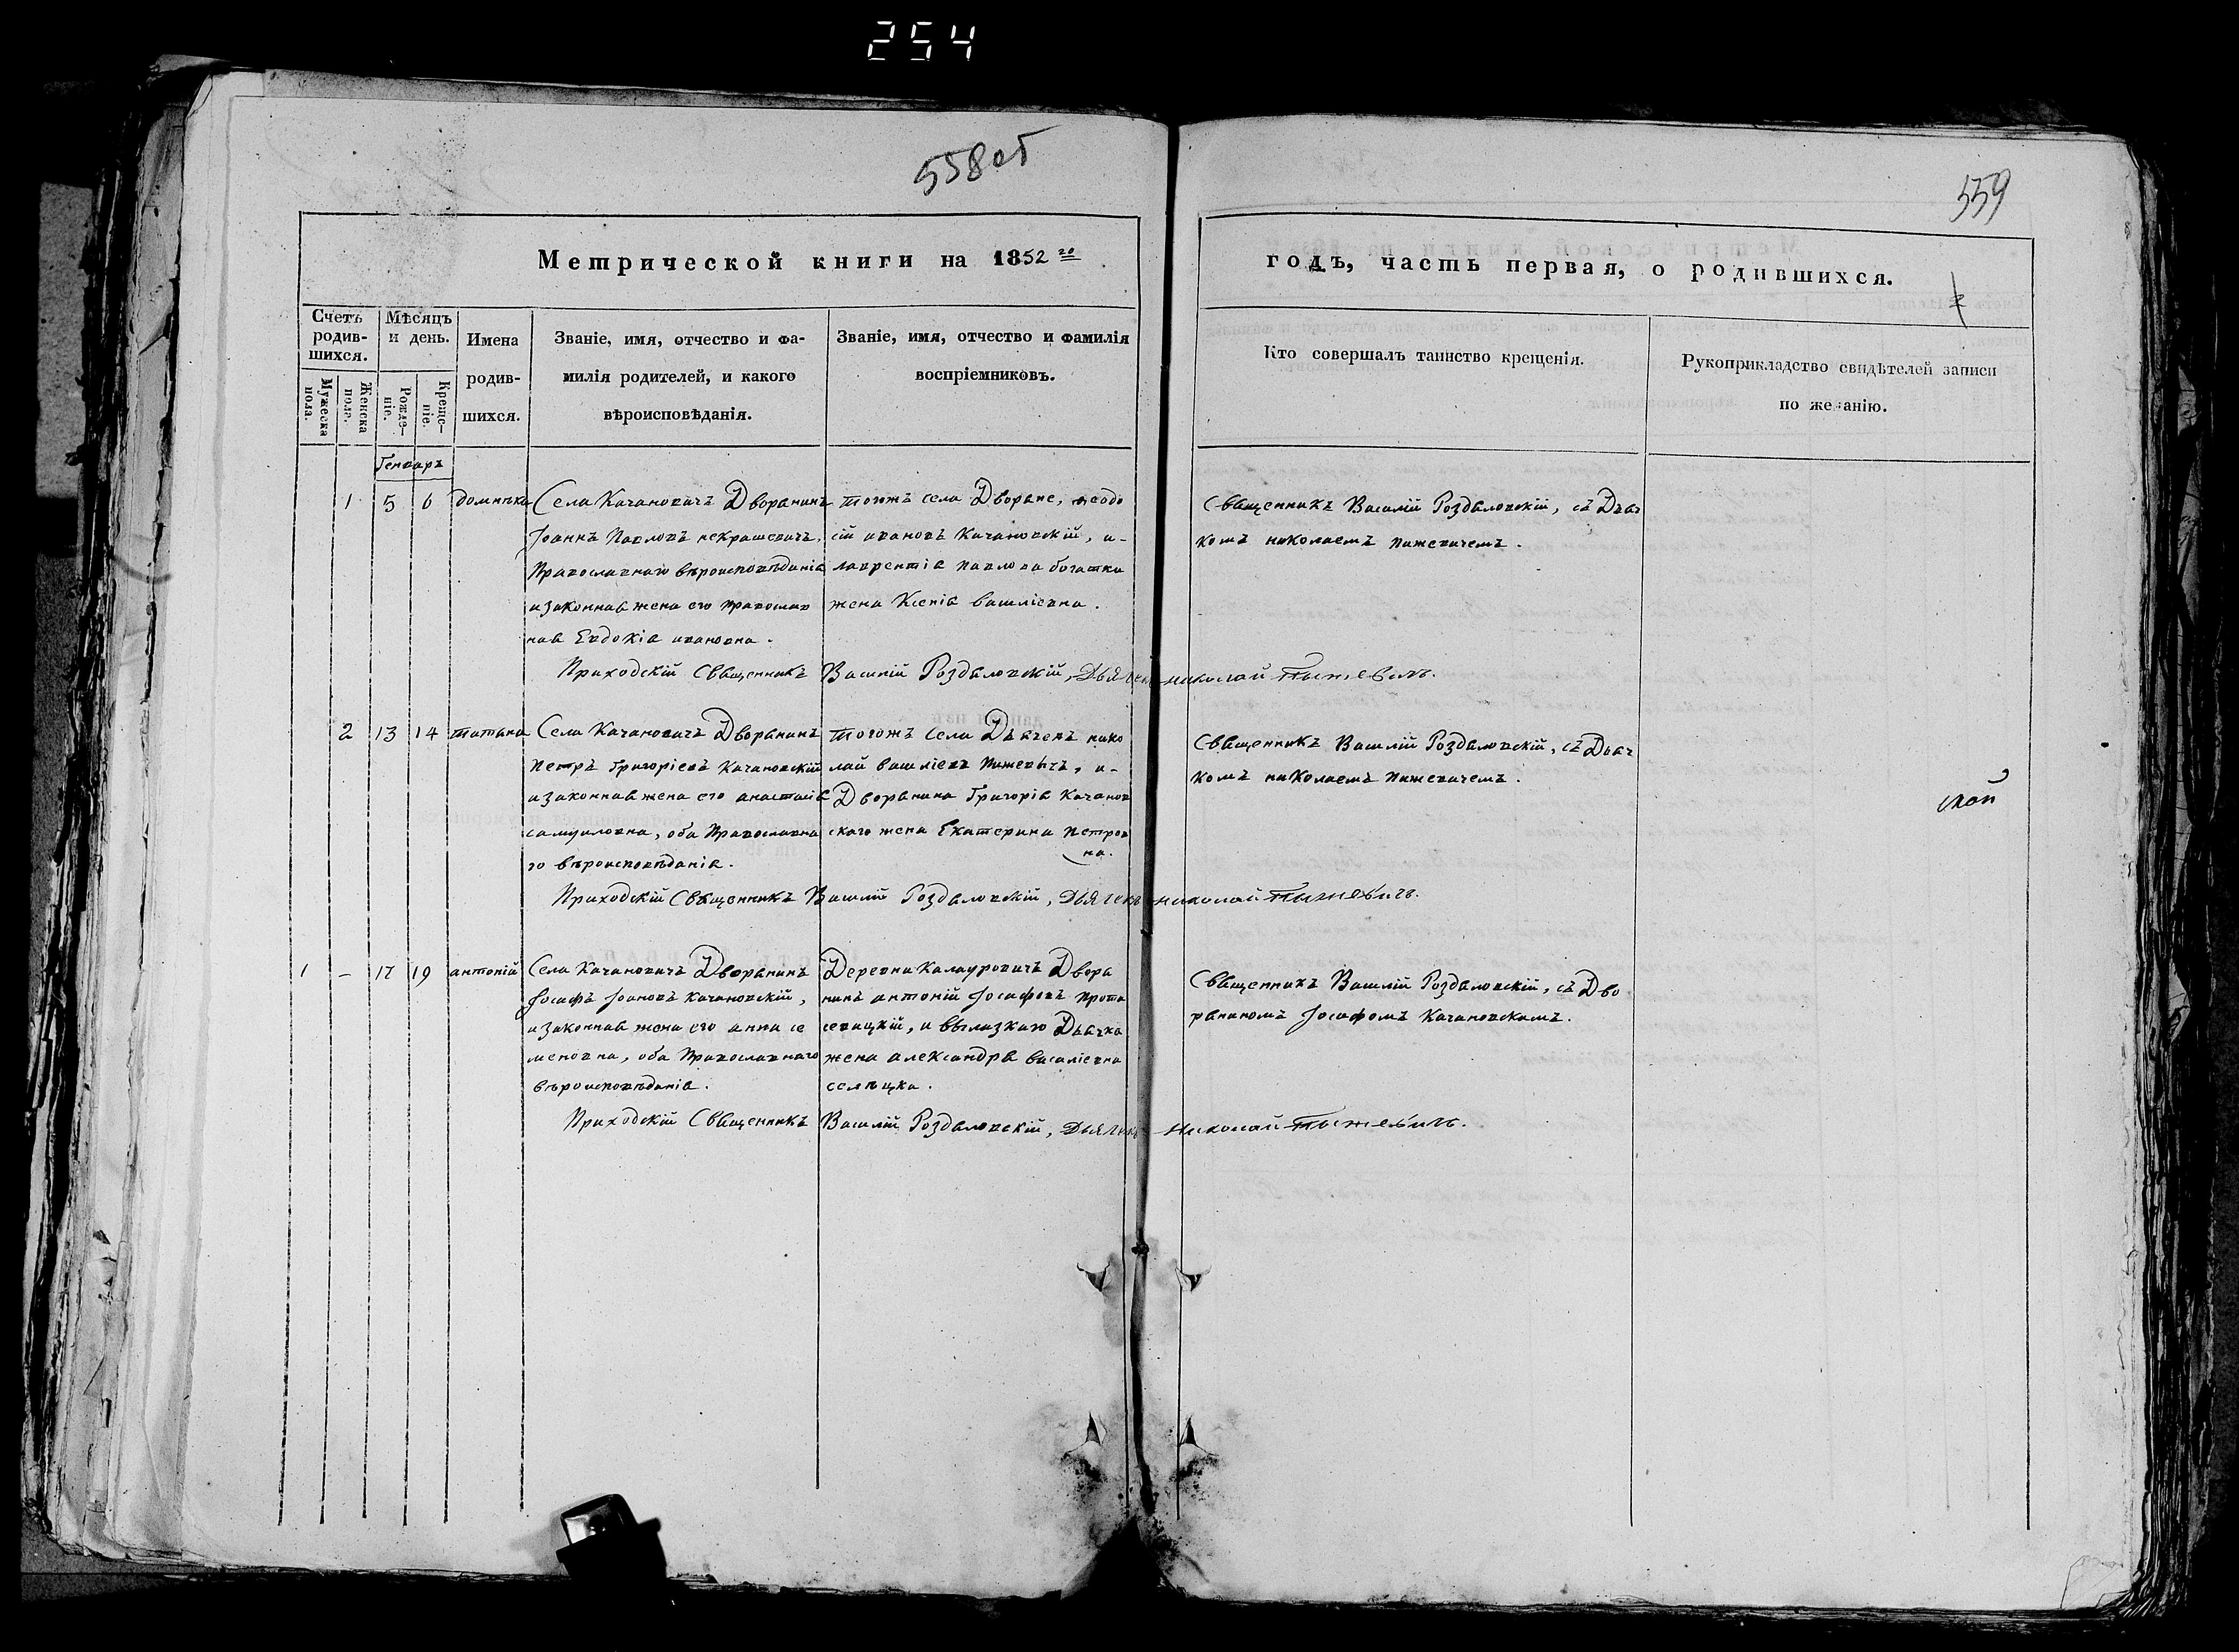 254
558об
559
Метрической книги на 1852го
годъ, часть первая, о родившихся.
Счетъ родив-шихся.
Мужеска пола.
Женска пола.
Мѣсяцъ и день.
Рожде-ніе.
Креще-ніе.
Имена
родив-
шихся.
Званіе, имя, отчество и фа-
милія родителей, и какого
вѣроисповѣданія.
Званіе, имя, отчество и фамилія
воспріемниковъ.
Кто совершалъ таинство крещенія.
Рукоприкладство свидѣтелей записи
по желанію.
Генваръ
1 5 6 домникa
Села Качановичъ Дворанинъ
Іоаннъ Павловъ некрашевичъ,
Православнаго вѣроисповѣданія
и законная жена его православ
ная Евдокія ивановна.
тогожъ села Дворане, ѳеодо
сій ивановъ Качановскій, и-
лаврентія павлова богатка
жена Ксенія василіевна.
Священникъ Василій Роздаловскій, съ Дьяч
комъ николаемъ пижевичемъ.
Приходскій Священникъ Василій Роздаловскій, Дьячекъ николай Пыжевичъ.
2 13 14 татiана
Села Качановичъ Дворанинъ
петръ Григоріевъ Качановскій
и законная жена его анастасія
самуиловна, оба Православна
го вѣроисповѣданія.
тогожъ села Дьячекъ нико
лай василіевъ Пижевичъ, и-
Дворанина Григорія Качанов
скаго жена Екатерина петров
на.
Священникъ Василій Роздаловскій, съ Дьяч
комъ николаемъ пижевичемъ.
Приходскій Священникъ Василій Роздаловскій, Дьячекъ николай Пыжевичъ.
1 – 17 19 антоній
Села Качановичъ Дворанинъ
Іосафъ Іоановъ Качановскій,
и законная жена его анна се
меновна, оба Православнаго
вѣроисповѣданія.
Деревни Калауровичъ Двора
нинъ антоній Іосафовъ прота
севицкій, и вылазкаго Дьячка
жена александра василіевна
селѣцка.
Священникъ Василій Роздаловскій, съ Дво
раниномъ Іосафомъ Качановскимъ.
Приходскій Священникъ Василій Роздаловскій, Дьячекъ Николай Пыжевичъ.